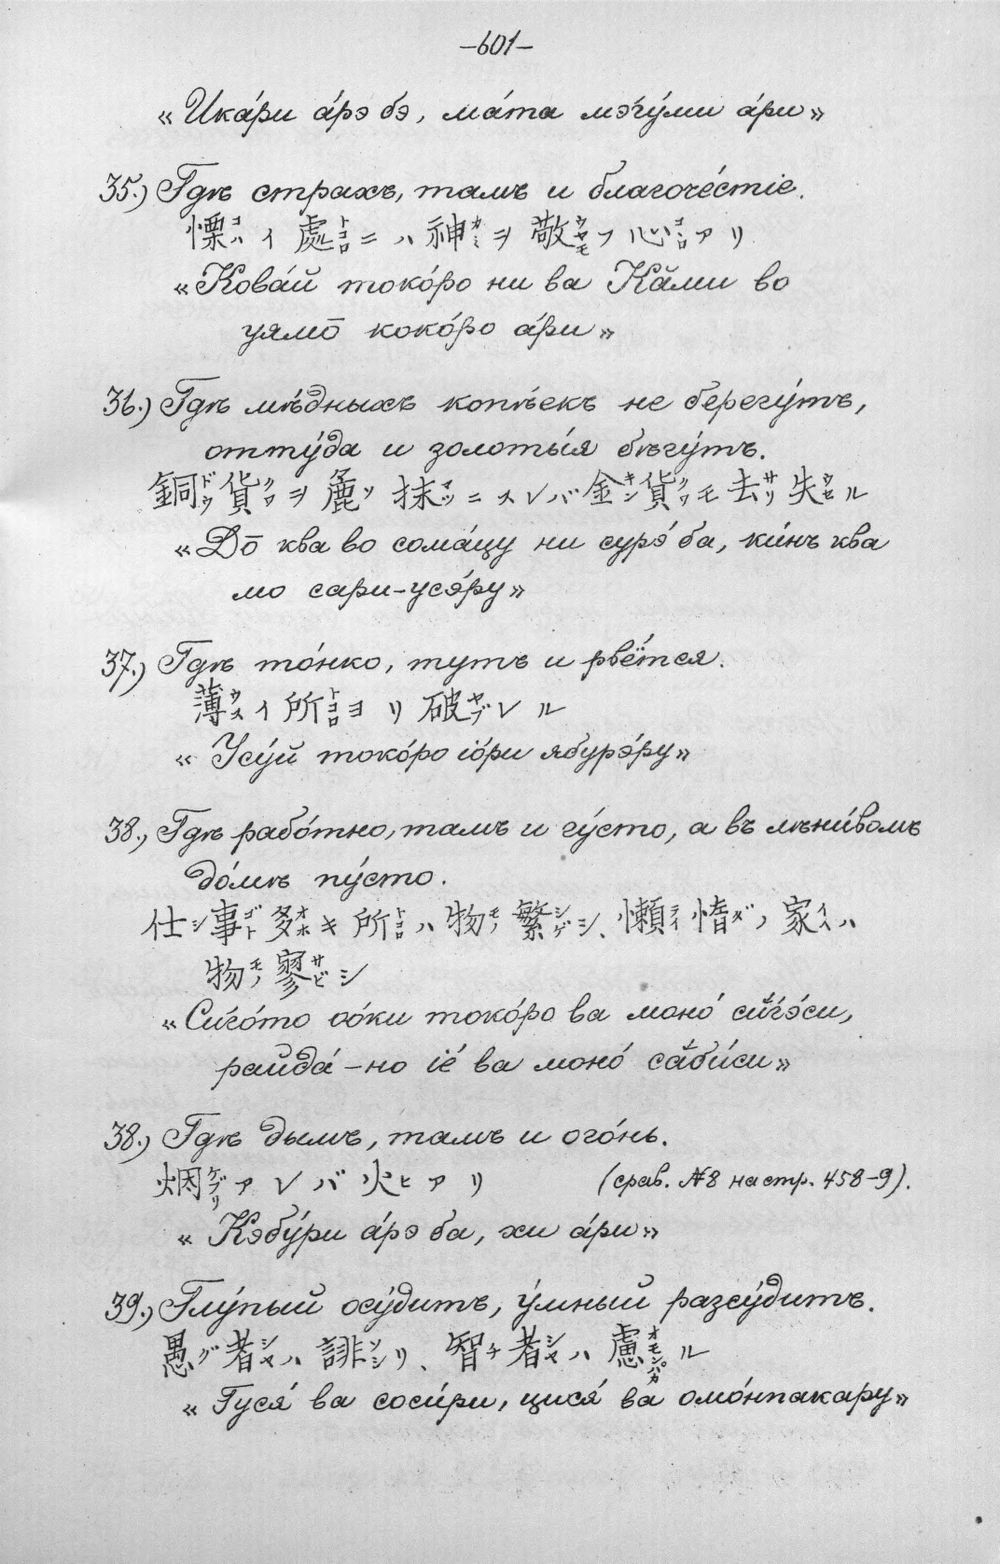 –601–
«Ика́ри а́рэ бэ, ма́та мэгу́ми а́ри»
35.) Гдѣ страхъ, тамъ и благоче́стіе.
慄コハイ處トコロニハ神カミヲ敬ウヤモフ心コヽロアリ
«Кова́й токо́ро ни ва Ка́ми во
уямо̄ коко́ро а́ри»
36.) Гдѣ мѣ́дныхъ копѣ́екъ не берегу́тъ,
отту́да и золоты́я бѣгу́тъ.
銅ドウ貨クワヲ麁ソ抹マツニスレバ金キン貨クワモ去サリ失ウセル
«До̄ ква во сома́цу ни сурэ́ ба, ки́нъ ква
мо сари-усэ́ру»
37.) Гдѣ то́нко, тутъ и рвётся.
薄ウスイ所トコロヨリ破ヤブレル
«Усу́й токо́ро іо́ри ябурэ́ру»
38.) Гдѣ рабо́тно, тамъ и гу́сто, а въ лѣни́вомъ
до́мѣ пу́сто.
仕シ事ゴト多オホキ所トコロハ物モノ繁シゲシ、懶ライ惰ダノ家イヘハ
物モノ寥サビシ
«Сиго́то оо́ки токо́ро ва моно́ сигэ́си,
райда́-но іе́ ва моно́ саби́си»
38.) Гдѣ дымъ, тамъ и ого́нь.
烟ケブリアレバ火ヒアリ (срав. №8 на стр. 458-9).
«Кэбу́ри а́рэ ба, хи а́ри»
39.) Глу́пый осу́дитъ, у́мный разсу́дитъ.
愚グ者シャハ誹ソシリ、智チ者シャハ慮オモンパカル
«Гуся́ ва соси́ри, цися́ ва омо́нпакару»